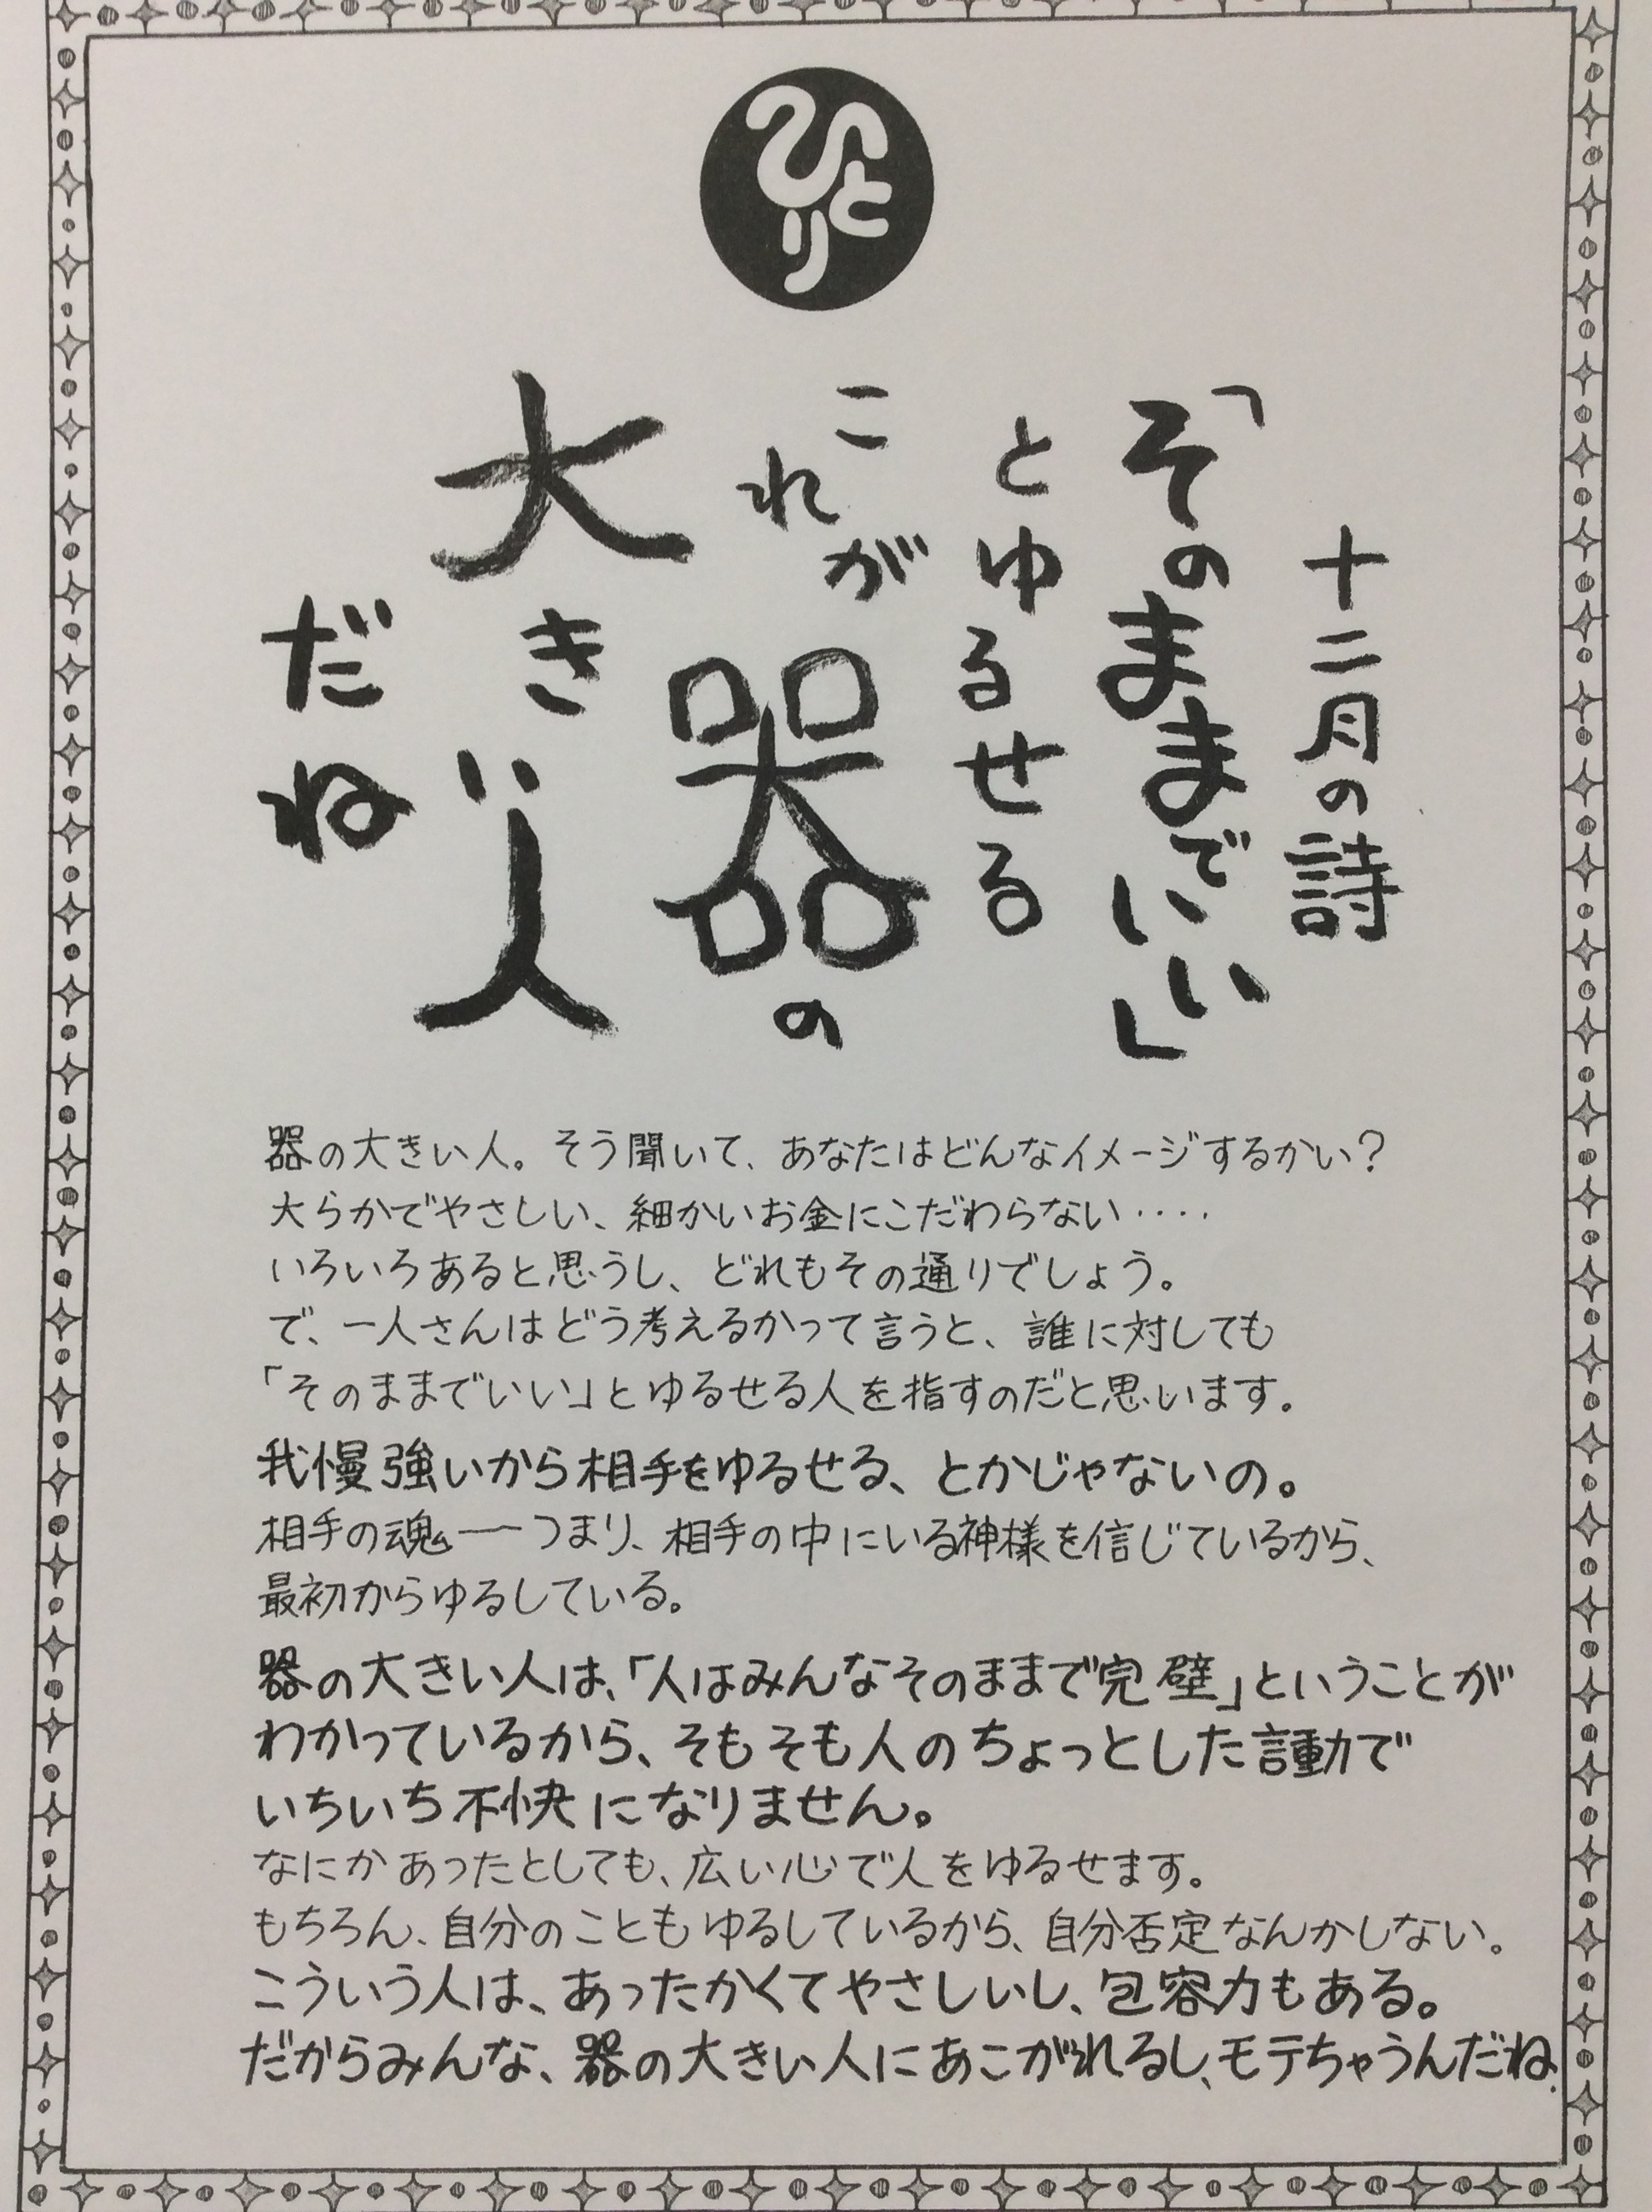 ひとり
十二月の詩
「そのままでいい」
とゆるせる
これが
器の
大きい人
だね
器の大きい人。そう聞いて、あなたはどんなイメージするかい？
大らかでやさしい、細かいお金にこだわらない‥‥
いろいろあると思うし、どれもその通りでしょう。
で、一人さんはどう考えるかって言うと、誰に対しても
「そのままでいい」とゆるせる人を指すのだと思います。
我慢強いから相手をゆるせる、とかじゃないの。
相手の魂――つまり、相手の中にいる神様を信じているから、
最初からゆるしている。
器の大きい人は、「人はみんなそのままで完璧」ということが
わかっているから、そもそも人のちょっとした言動で
いちいち不快になりません。
なにかあったとしても、広い心で人をゆるせます。
もちろん、自分のこともゆるしているから、自分否定なんかしない。
こういう人は、あったかくてやさしいし、包容力もある。
だからみんな、器の大きい人にあこがれるし、モテちゃうんだね.